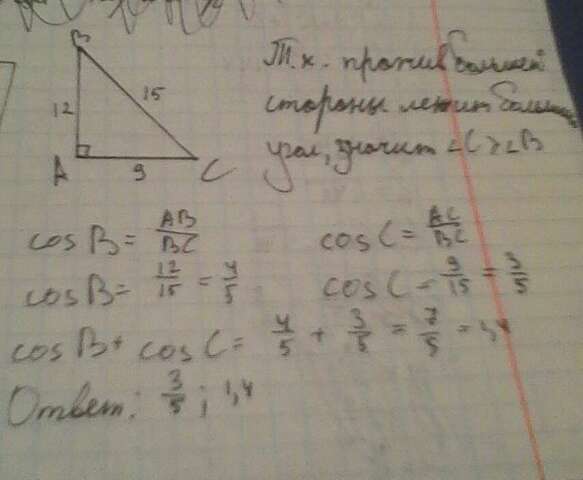 B
12
15
A
9
C
Т.к. против большей
стороны лежит больший
угол, значит ∠C > ∠B
cos B = AB/BC
cos C = AC/BC
cos B = 12/15 = 4/5
cos C = 9/15 = 3/5
cos B + cos C = 4/5 + 3/5 = 7/5 = 1,4
Ответ: 3/5 ; 1,4